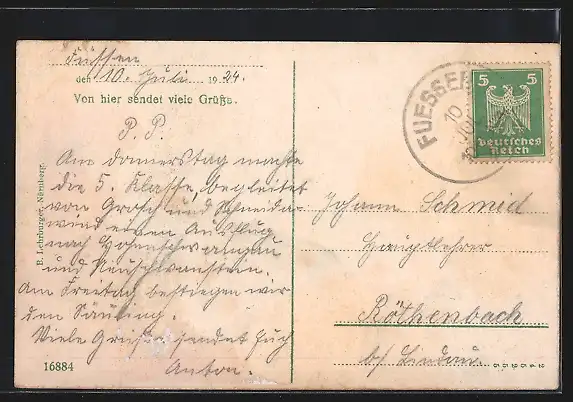 Füssen
den 10. Juli 1924.
Von hier sendet viele Grüße.
P. P.
Am donnerstag machte
die 5. Klasse, begleitet
von Grosch und Schneider
wind einen Ausflug
nach Hohenschwangau
und Neuschwanstein.
Am Freitag bestiegen wir
den Säuling.
Viele Grüße sendet Euch
Anton.
16884
B. Lehrburger, Nürnberg.
FUESSEN
10
5 5
Deutsches
Reich
Johann Schmid
Hauptlehrer
Röthenbach
b/ Lindau